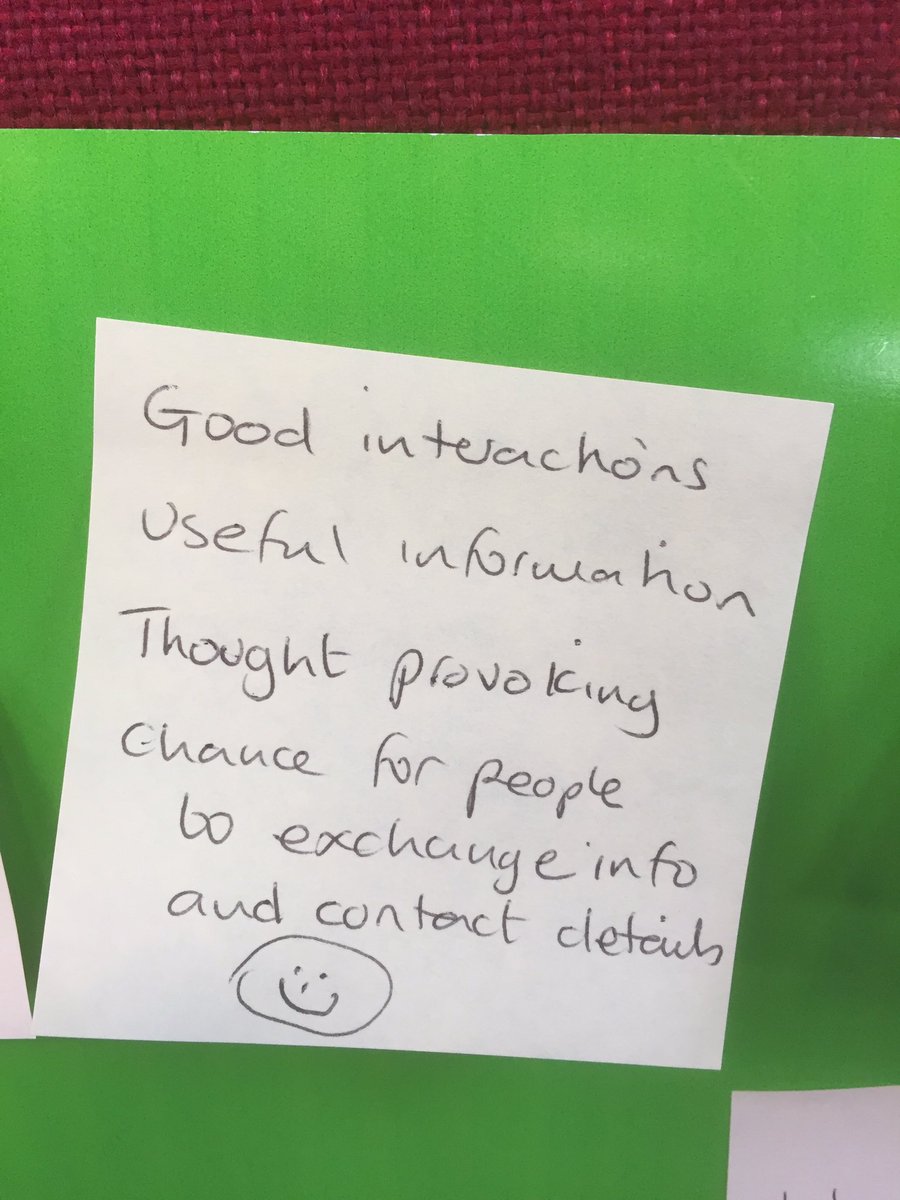 Good interactions
Useful information
Thought provoking
Chance for people
to exchange info
and contact details